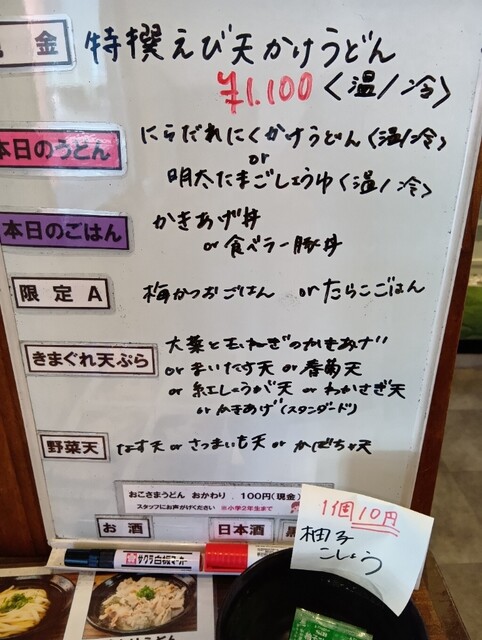 金
特撰えび天かけうどん
¥1,100〈温/冷〉
本日のうどん
にらだれにくかけうどん〈温/冷〉
or
明太たまごしょうゆ〈温/冷〉
本日のごはん
かきあげ丼
or 食べラー豚丼
限定A
梅かつおごはん or たらこごはん
きまぐれ天ぷら
大葉と玉ねぎのかきあげ
or まいたけ天 or 春菊天
or 紅しょうが天 or わかさぎ天
or かきあげ(スタンダード)
野菜天
なす天 or さつまいも天 or かぼちゃ天
おこさまうどん おかわり 100円(現金)
スタッフにお声がけください ※小学2年生まで
お酒
日本酒
1個10円
柚子
こしょう
サクラ白板マーカー